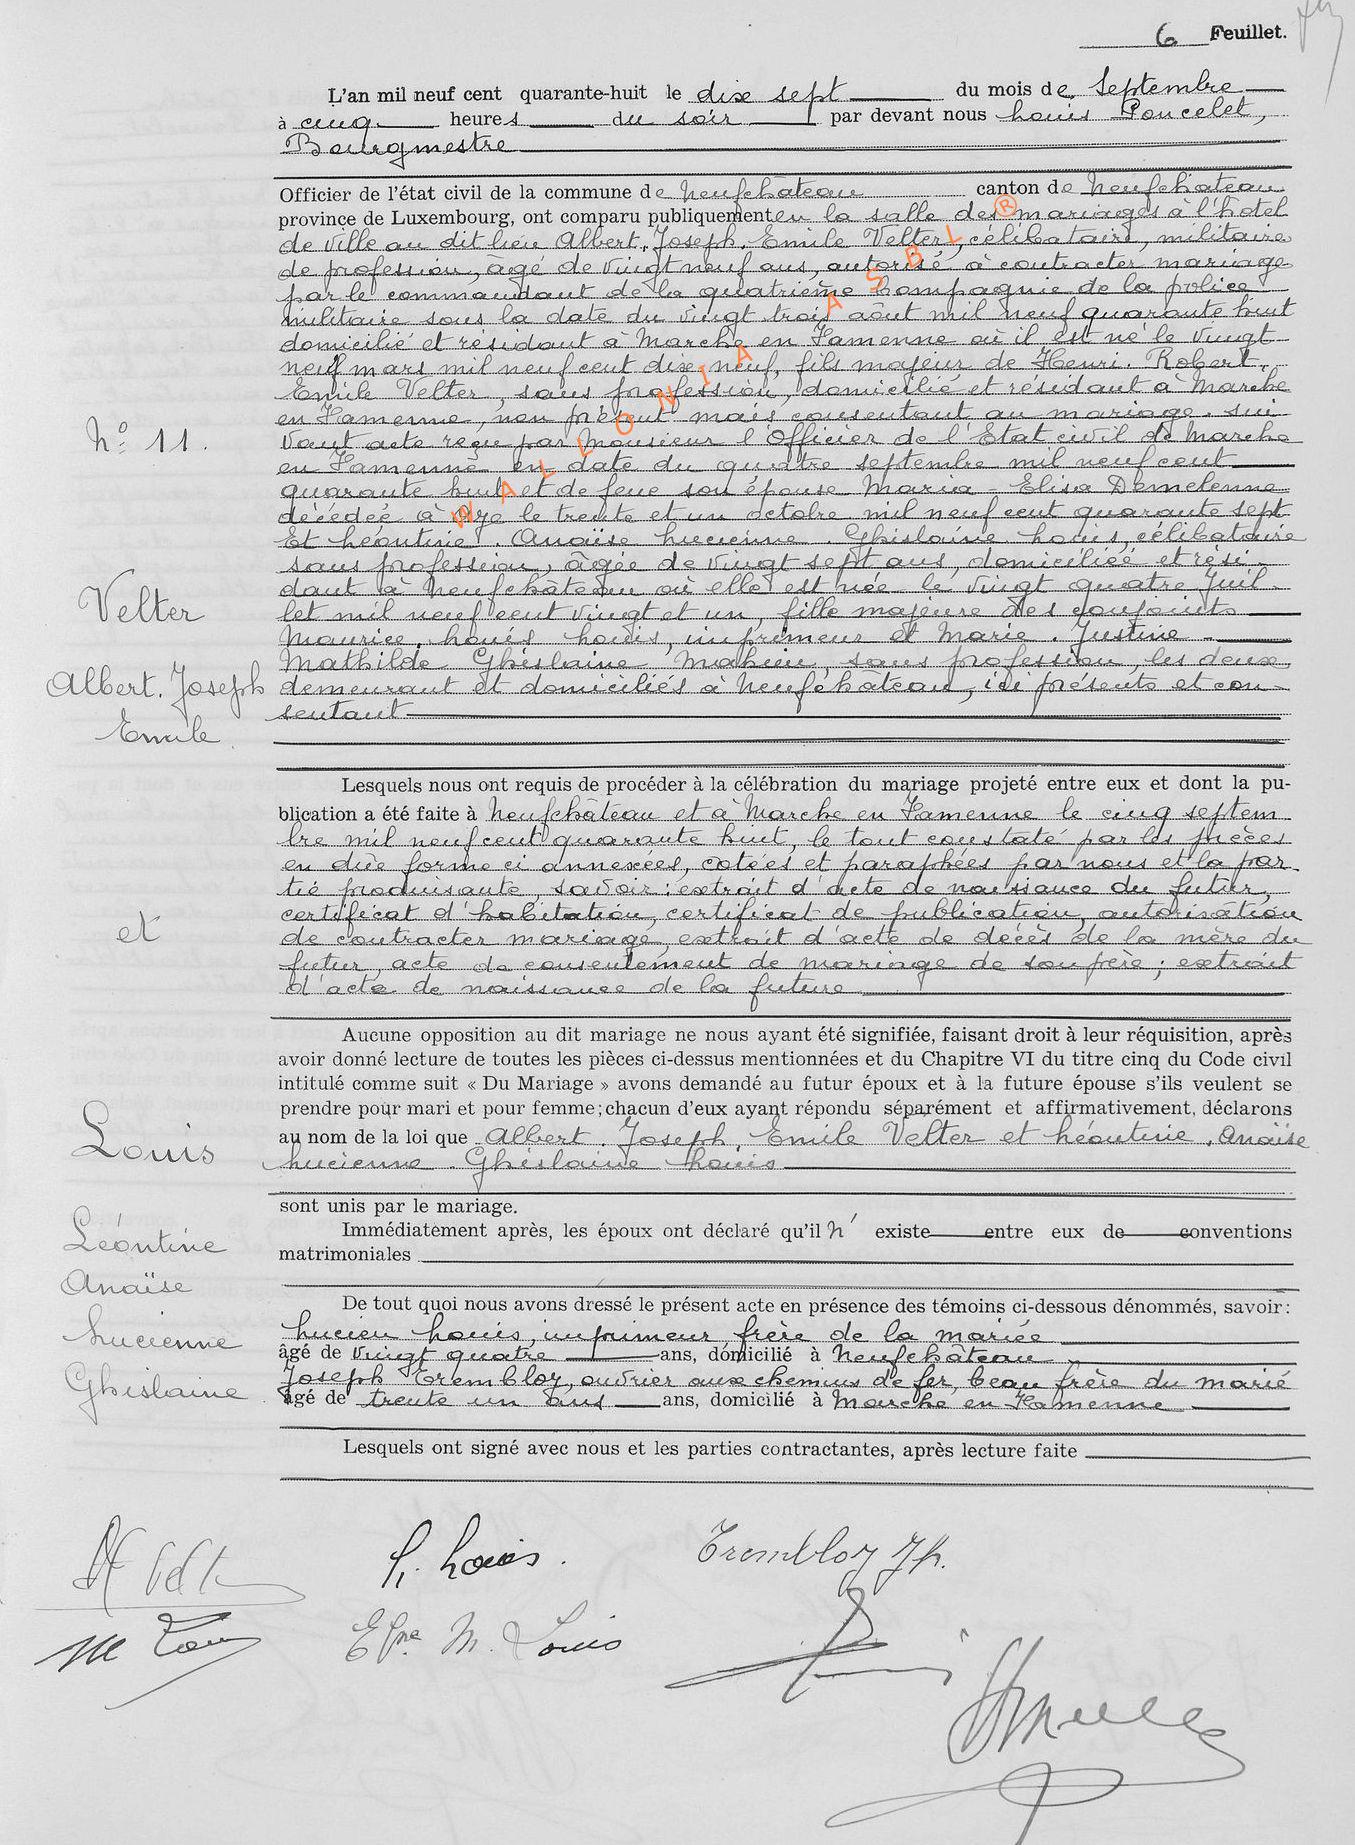 6 Feuillet.
L'an mil neuf cent quarante-huit le dix sept du mois de Septembre
à cinq heures du soir par devant nous Louis Poncelet,
Bourgmestre
Officier de l'état civil de la commune de Neufchâteau canton de Neufchâteau
province de Luxembourg, ont comparu publiquement en la salle des mariages à l'hôtel
de ville au dit lieu Albert. Joseph. Emile Velter, célibataire, militaire
de profession, âgé de vingt neuf ans, autorisé à contracter mariage
par le commandant de la quatrième Compagnie de la police
militaire sous la date du vingt trois août mil neuf quarante huit
domicilié et résidant à Marche en Famenne où il est né le vingt
neuf mars mil neuf cent dix neuf, fils majeur de Henri. Robert.
Emile Velter, sans profession, domicilié et résidant à Marche
en Famenne, non présent mais consentant au mariage. sui
vant acte reçu par Monsieur l'Officier de l'Etat civil de Marche
en Famenne en date du quatre septembre mil neuf cent
quarante huit et de feue son épouse Maria - Elisa Demelenne
décédée à Aye le trente et un octobre mil neuf cent quarante sept
Et Léontine. Anaïse Lucienne. Ghislaine Louis, célibataire
sans profession, âgée de vingt sept ans, domiciliée et rési
dant à Neufchâteau où elle est née le vingt quatre Juil
let mil neuf cent vingt et un, fille majeure des conjoints
Maurice. Louis Louis, imprimeur et Marie. Justine -
Mathilde Ghislaine Mahieu, sans profession, les deux
demeurant et domiciliés à Neufchâteau, ici présents et con-
sentant
Nº 11.
Velter
Albert. Joseph
Emile
et
Louis
Léontine
Anaïse
Lucienne
Ghislaine
Lesquels nous ont requis de procéder à la célébration du mariage projeté entre eux et dont la pu-
blication a été faite à Neufchâteau et à Marche en Famenne le cinq septem
bre mil neuf cent quarante huit, le tout constaté par les pièces
en dûe forme ci annexées, cotées et paraphées par nous et la par
tie produisante, savoir : extrait d'acte de naissance du futur,
certificat d'habitation, certificat de publication, autorisation
de contracter mariage, extrait d'acte de décès de la mère du
futur, acte de consentement de mariage de son père ; extrait
d'acte de naissance de la future
Aucune opposition au dit mariage ne nous ayant été signifiée, faisant droit à leur réquisition, après
avoir donné lecture de toutes les pièces ci-dessus mentionnées et du Chapitre VI du titre cinq du Code civil
intitulé comme suit « Du Mariage » avons demandé au futur époux et à la future épouse s'ils veulent se
prendre pour mari et pour femme ; chacun d'eux ayant répondu séparément et affirmativement, déclarons
au nom de la loi que Albert. Joseph. Emile Velter et Léontine. Anaïse
Lucienne. Ghislaine Louis
sont unis par le mariage.
Immédiatement après, les époux ont déclaré qu'il n' existe entre eux de conventions
matrimoniales
De tout quoi nous avons dressé le présent acte en présence des témoins ci-dessous dénommés, savoir :
Lucien Louis, imprimeur, frère de la mariée
âgé de vingt quatre ans, domicilié à Neufchâteau
Joseph Trembloy, ouvrier aux chemins de fer, beau frère du marié
âgé de trente un ans ans, domicilié à Marche en Famenne
Lesquels ont signé avec nous et les parties contractantes, après lecture faite
L. Louis.
Trembloy Jh.
M. Louis
WALLONIA ASBL ®